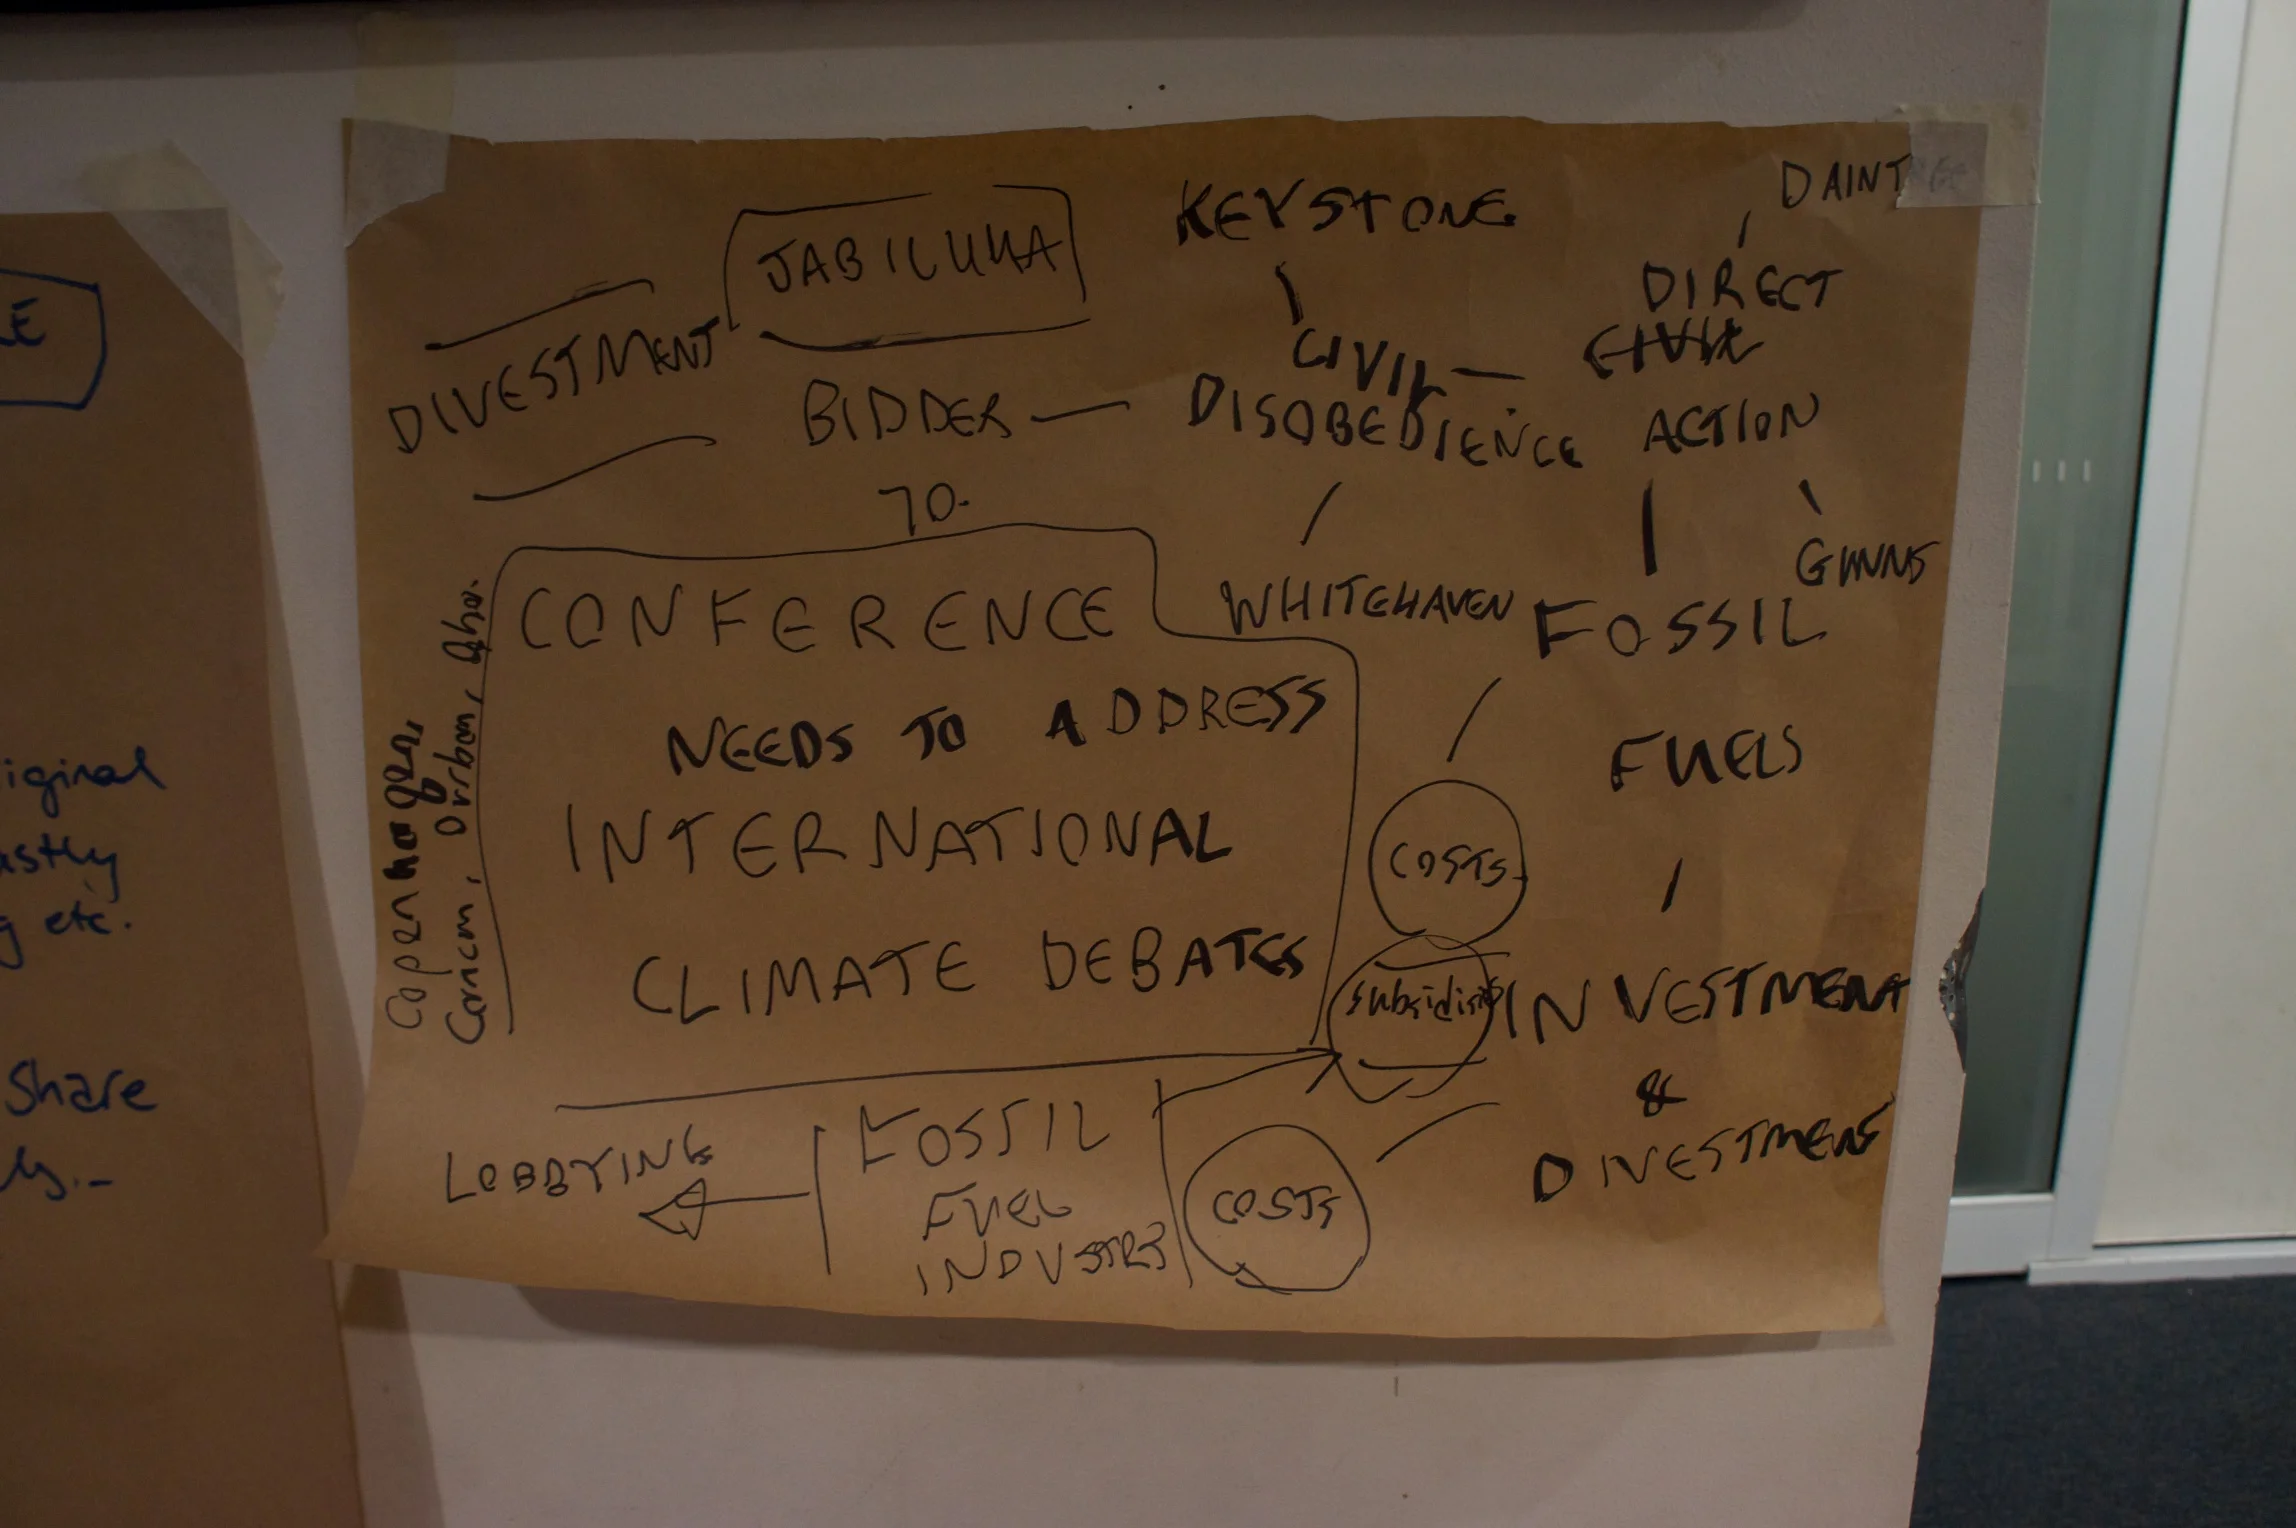 DAINTREE
KEYSTONE
JABILUKA
DIRECT
DIVESTMENT
CIVIL
CIVIL
BIDDER
DISOBEDIENCE
ACTION
70.
GUNNS
WHITEHAVEN
FOSSIL
FUELS
CONFERENCE
NEEDS TO ADDRESS
INTERNATIONAL
CLIMATE DEBATES
Copenhagen,
Cancun, Durban, Qha.
COSTS
subsidies
INVESTMENT
&
DIVESTMENT
LOBBYING
FOSSIL
FUEL
INDUSTRY
COSTS
etc.
Share